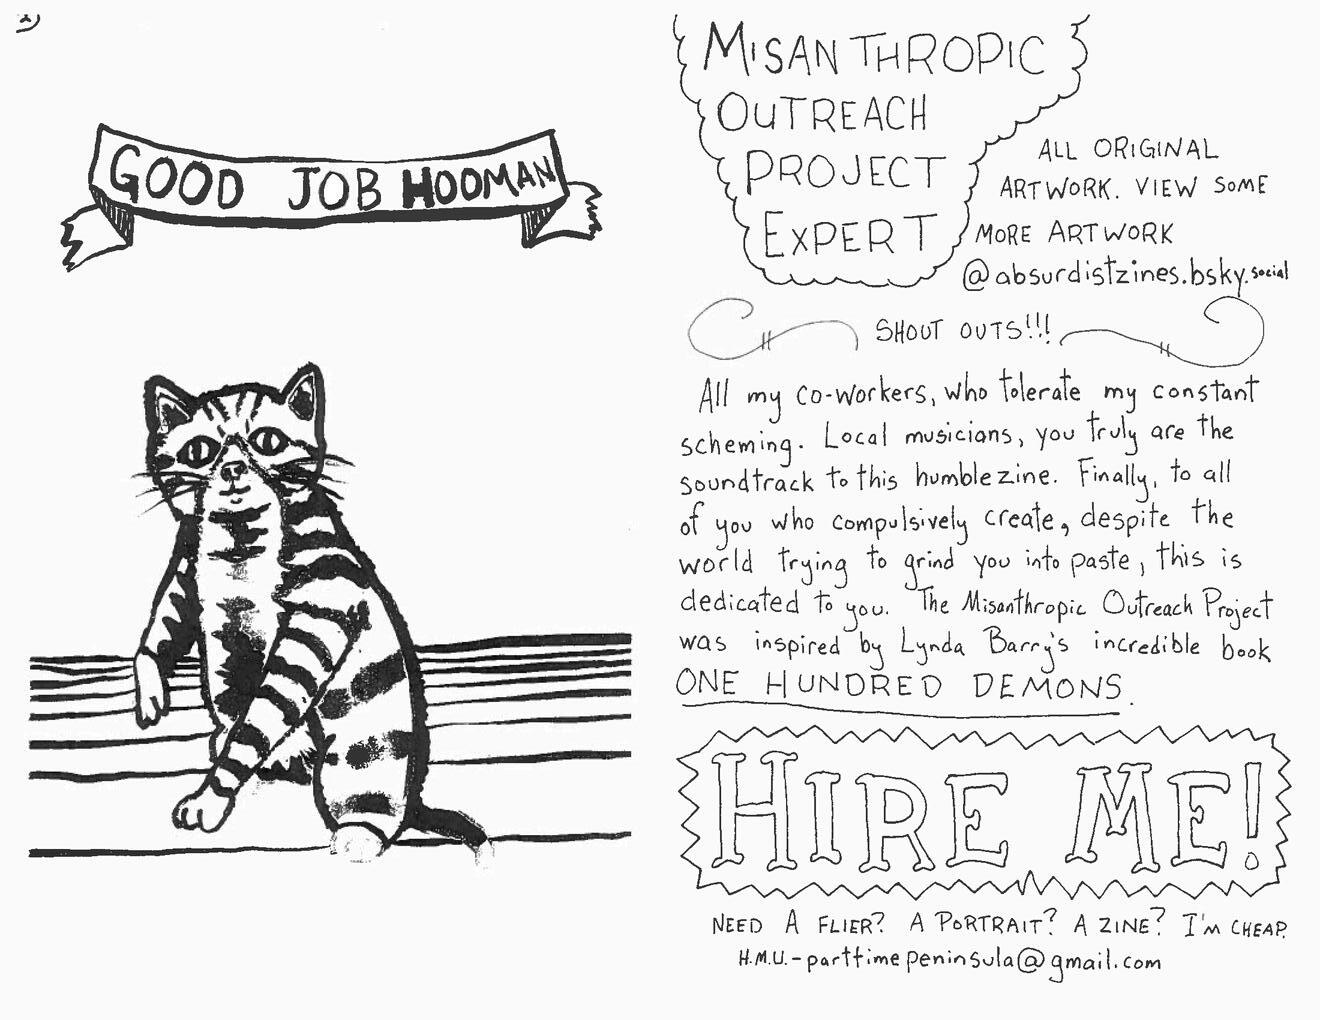 GOOD JOB HOOMAN
MISANTHROPIC
OUTREACH
PROJECT
EXPERT
ALL ORIGINAL
ARTWORK. VIEW SOME
MORE ARTWORK
@absurdistzines.bsky.social
SHOUT OUTS!!!
All my co-workers, who tolerate my constant
scheming. Local musicians, you truly are the
soundtrack to this humble zine. Finally, to all
of you who compulsively create, despite the
world trying to grind you into paste, this is
dedicated to you. The Misanthropic Outreach Project
was inspired by Lynda Barry's incredible book
ONE HUNDRED DEMONS.
HIRE ME!
NEED A FLIER? A PORTRAIT? A ZINE? I'M CHEAP.
H.M.U.- parttimepeninsula@gmail.com